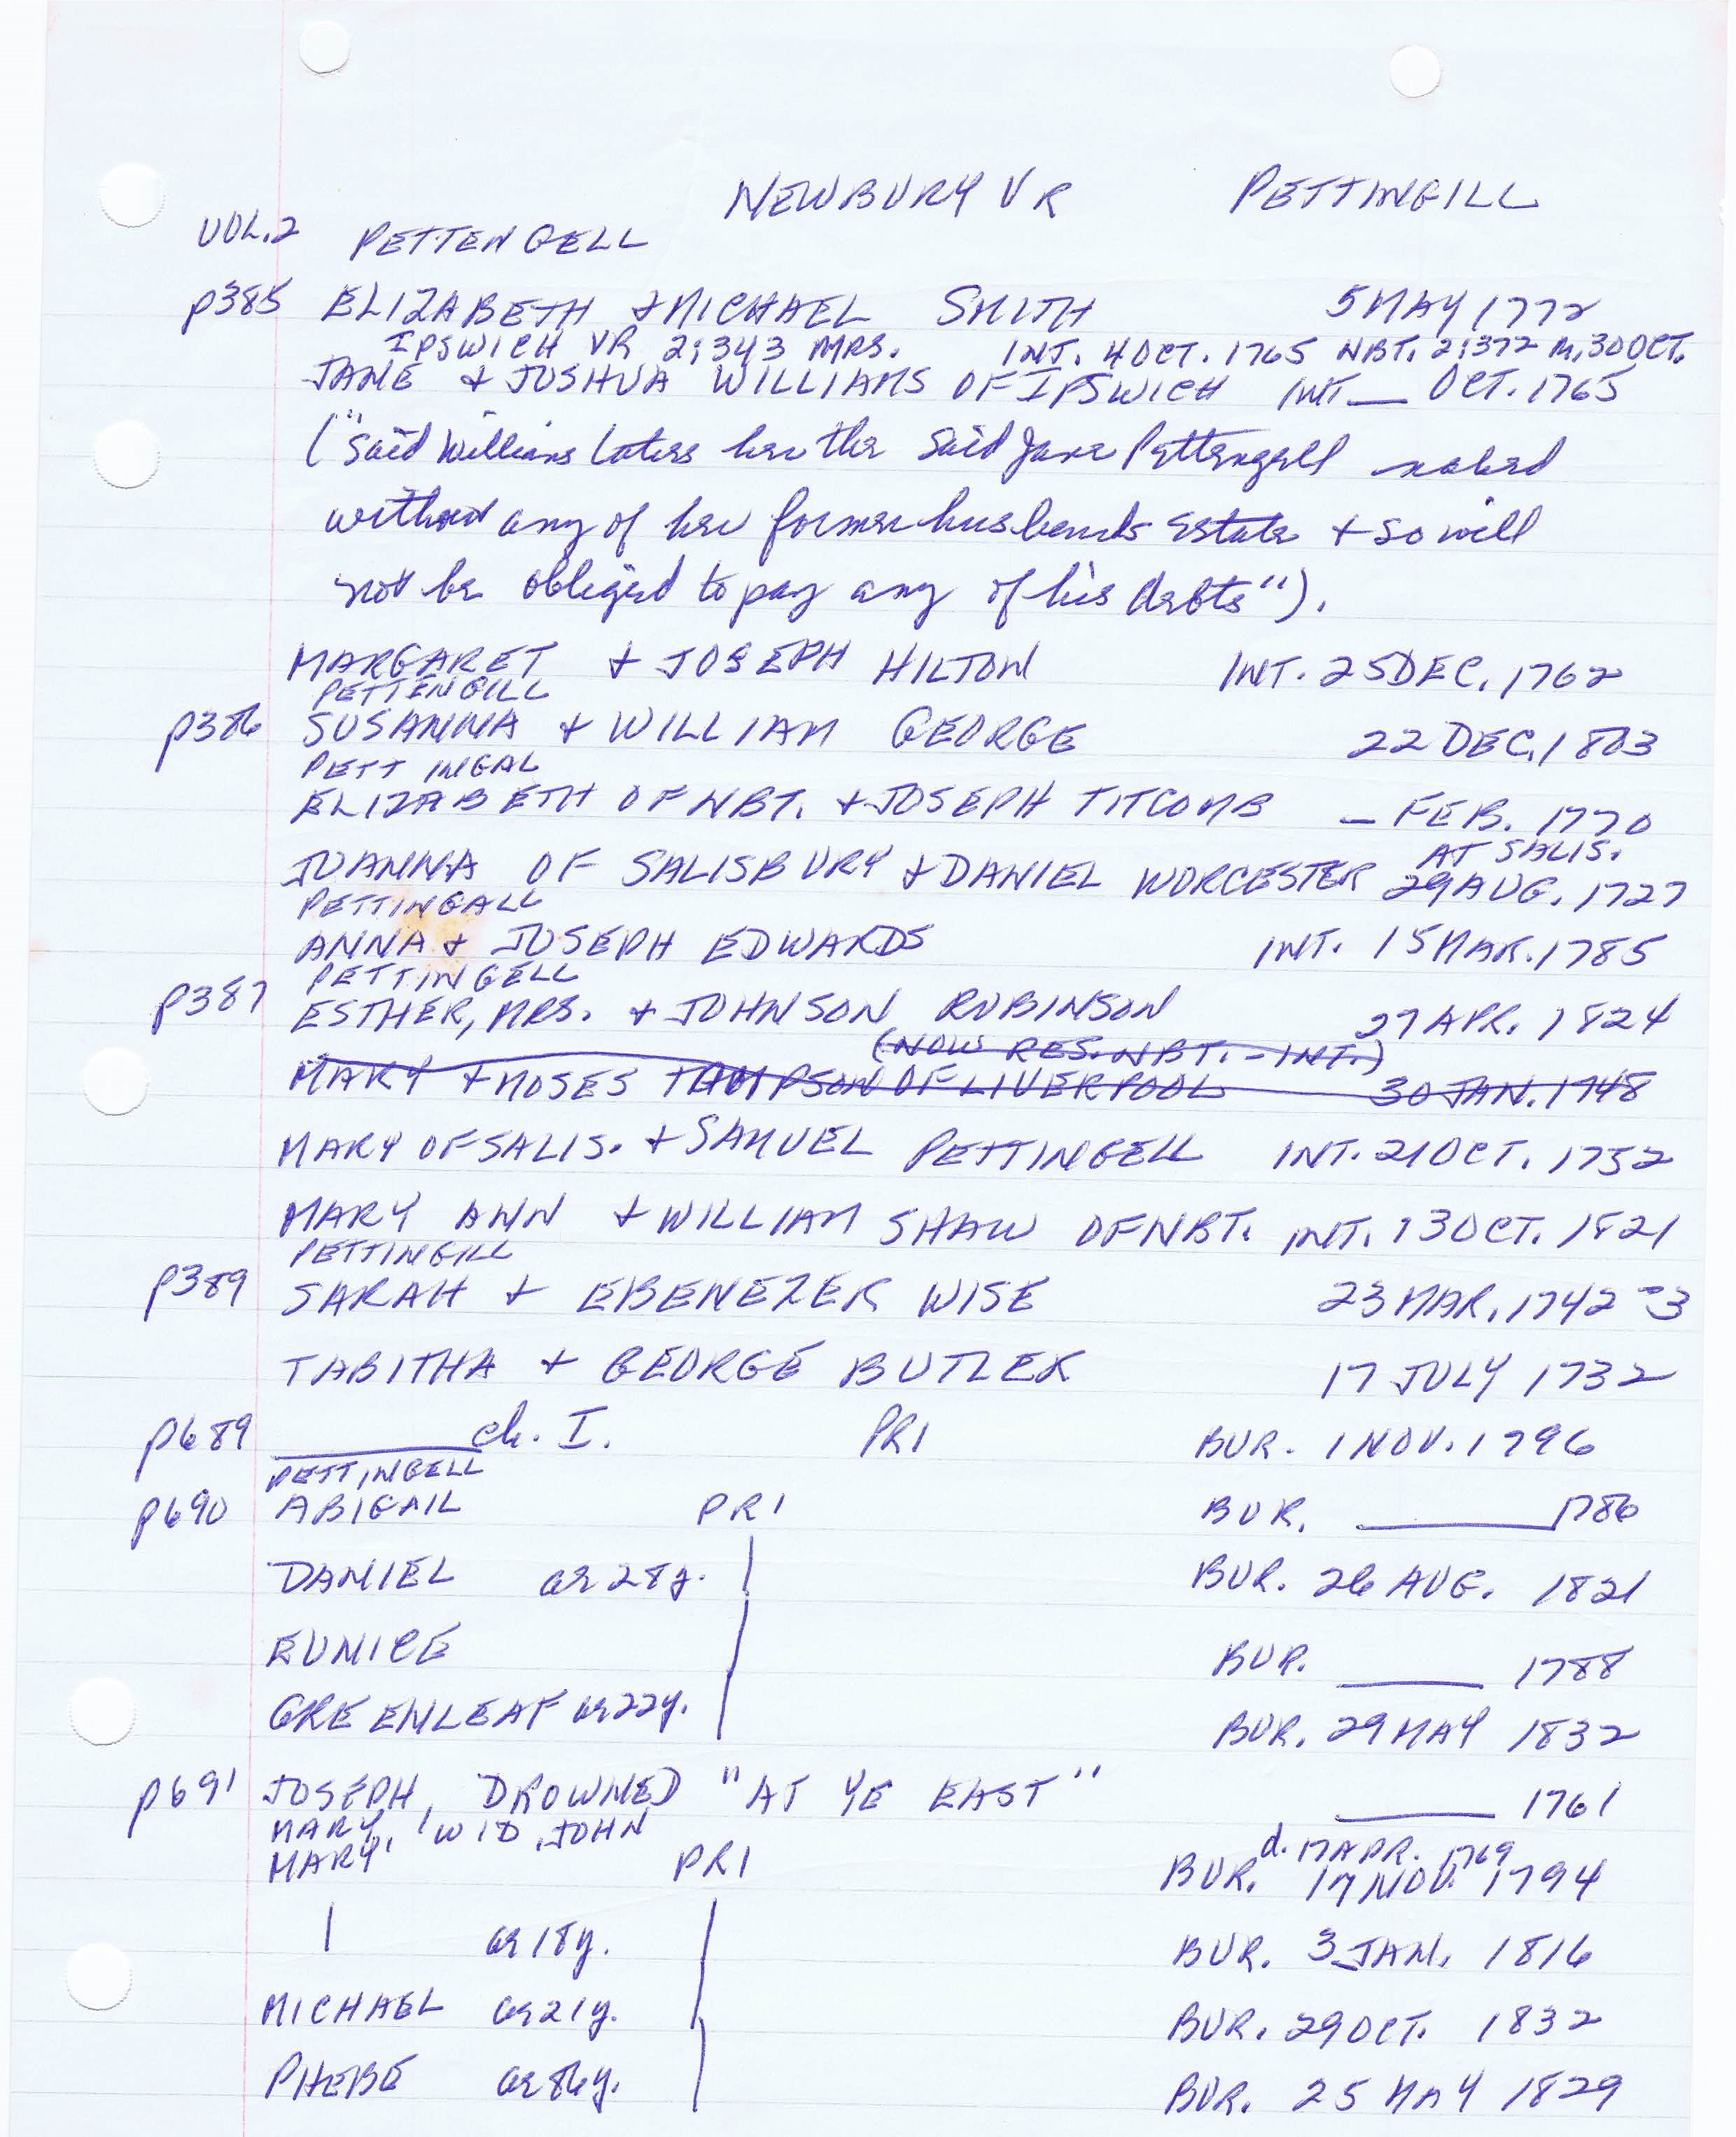 NEWBURY VR PETTINGILL
VOL.2 PETTENGELL
p385 ELIZABETH + MICHAEL SMITH 5 MAY 1772
IPSWICH VR 2:343 MRS. INT. 4 OCT. 1765 NBT. 2:372 M. 30 OCT.
JANE + JOSHUA WILLIAMS OF IPSWICH INT __ OCT. 1765
("Said Williams takes her the said Jane Pettengell naked
without any of her former husbands Estate + so will
not be obliged to pay any of his debts").
MARGARET + JOSEPH HILTON INT. 25 DEC. 1762
PETTENGILL
p386 SUSANNA + WILLIAM GEORGE 22 DEC. 1803
PETTINGAL
ELIZABETH OF NBT. + JOSEPH TITCOMB _ FEB. 1770
AT SALIS.
JOANNA OF SALISBURY + DANIEL WORCESTER 29 AUG. 1727
PETTINGALL
ANNA + JOSEPH EDWARDS INT. 15 MAR. 1785
PETTINGELL
p387 ESTHER, MRS. + JOHNSON ROBINSON 27 APR. 1824
(NOW RES. NBT. - INT.)
MARY + MOSES TAMPSON OF LIVERPOOL 30 JAN. 1748
MARY OF SALIS. + SAMUEL PETTINGELL INT. 21 OCT. 1732
MARY ANN + WILLIAM SHAW OF NBT. INT. 13 OCT. 1821
PETTINGILL
p389 SARAH + EBENEZER WISE 23 MAR. 1742-3
TABITHA + GEORGE BUTLER 17 JULY 1732
p689 ______ ch. I. PR1 BUR. 1 NOV. 1796
PETTINGELL
p690 ABIGAIL PR1 BUR. ______ 1786
DANIEL ae 28 y. | BUR. 26 AUG. 1821
EUNICE | BUR. ______ 1788
GREENLEAF ae 22 y. | BUR. 29 MAY 1832
p691 JOSEPH, DROWNED "AT YE EAST" ______ 1761
MARY, WID. JOHN d. 17 APR. 1769
MARY, PR1 BUR. 17 NOV. 1794
| ae 18 y. | BUR. 3 JAN. 1816
MICHAEL ae 21 y. | BUR. 29 OCT. 1832
PHEBE ae 86 y. | BUR. 25 MAY 1829